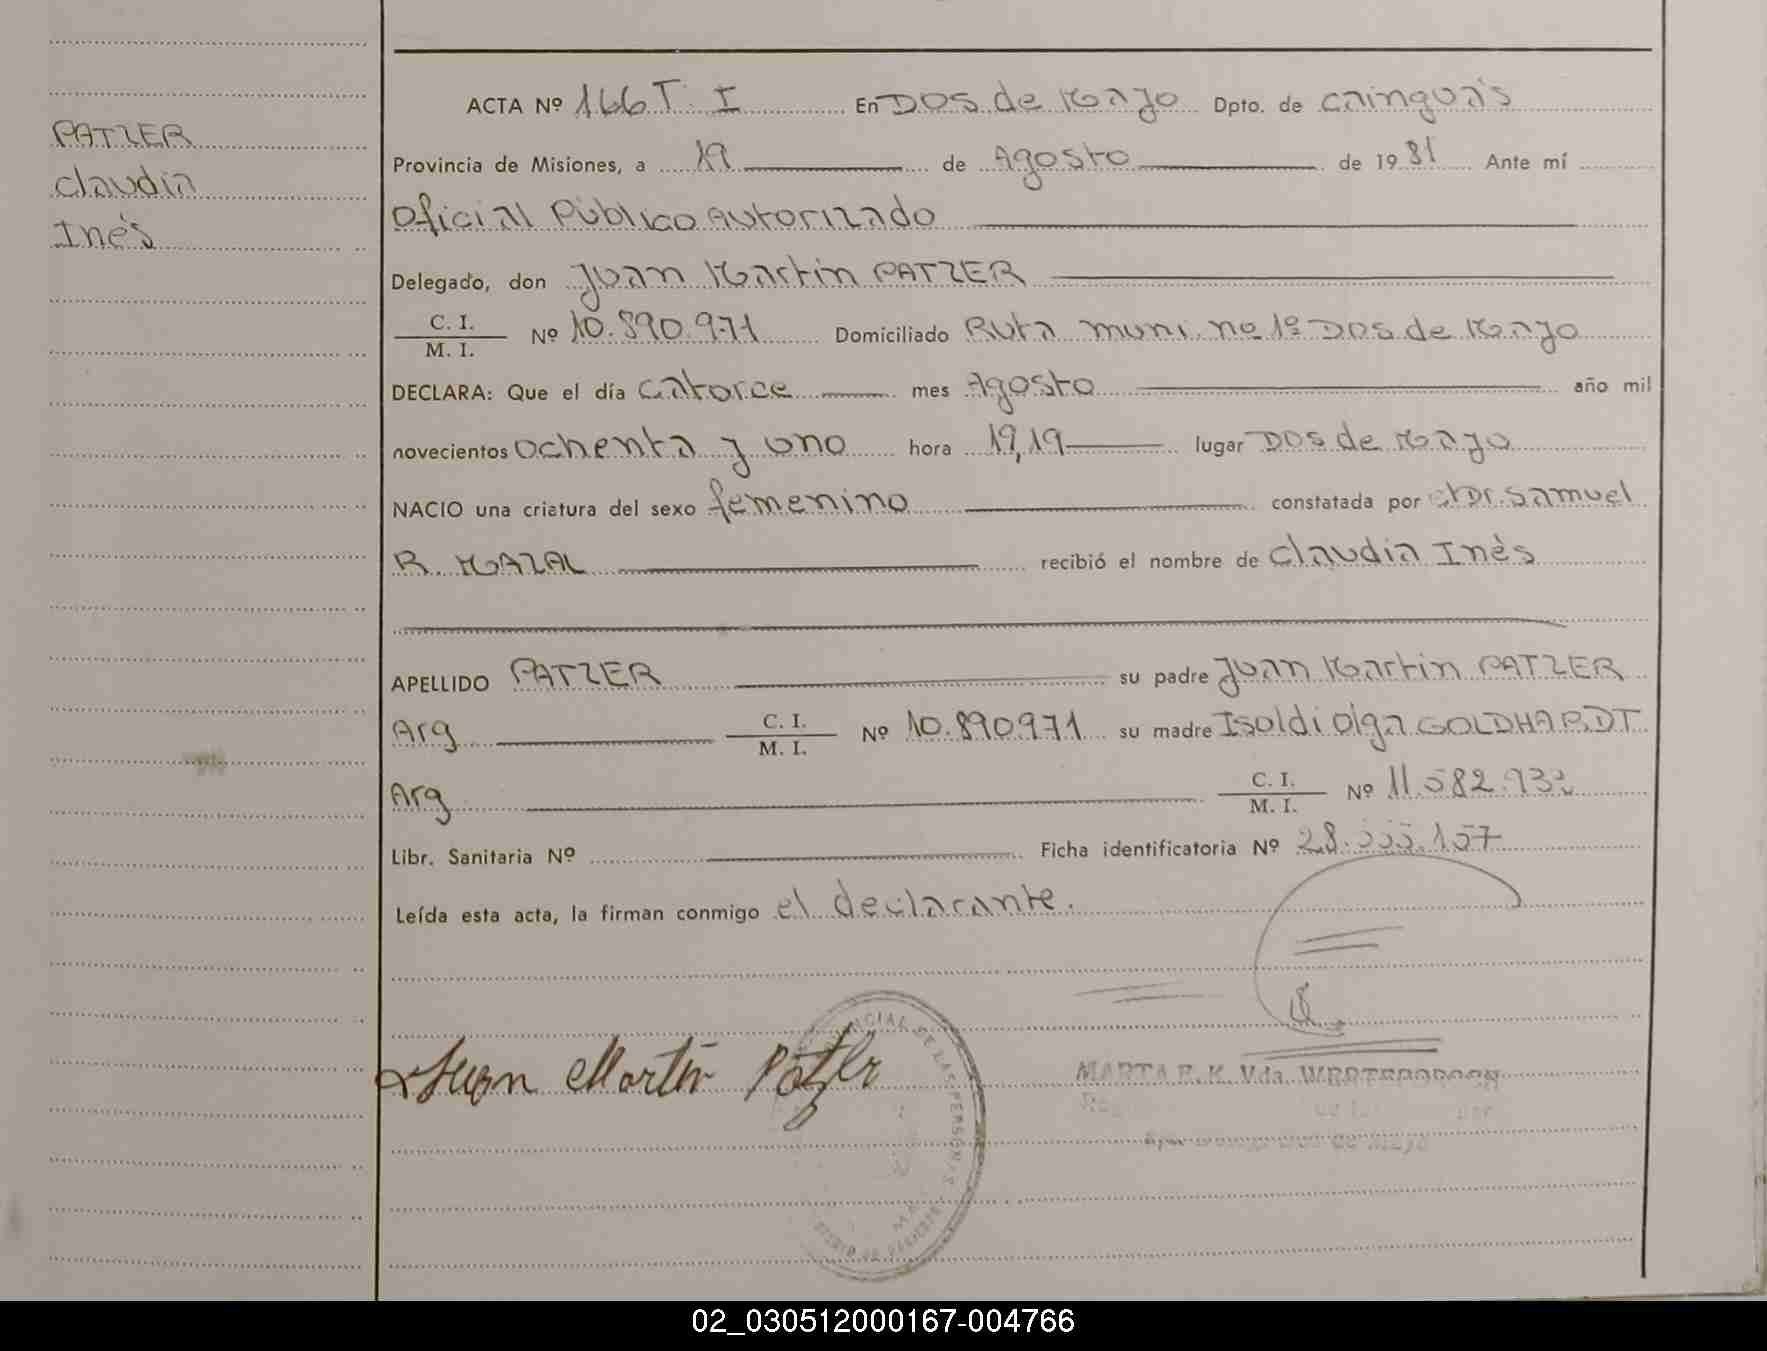 PATZER
Claudia
Inés
ACTA Nº 166 T. I En DOS de Mayo Dpto. de Cainguás
Provincia de Misiones, a 19 de Agosto de 1981 Ante mí
Oficial Público Autorizado
Delegado, don Juan Martin PATZER
C. I.
M. I. Nº 10.890.971 Domiciliado Ruta muni. nº 1º DOS de Mayo
DECLARA: Que el día catorce mes Agosto año mil
novecientos ochenta y uno hora 19,19 lugar DOS de Mayo
NACIO una criatura del sexo femenino constatada por Dr. Samuel
R. MAZAL recibió el nombre de Claudia Inés
APELLIDO PATZER su padre Juan Martin PATZER
Arg C. I.
M. I. Nº 10.890.971 su madre Isoldi Olga GOLDHARDT
Arg C. I.
M. I. Nº 11.582.933
Libr. Sanitaria Nº Ficha identificatoria Nº 28.555.157
Leída esta acta, la firman conmigo el declarante.
Juan Martin Patzer
MARTA E. K. Vda.
DE LAS PERSONAS
02_030512000167-004766